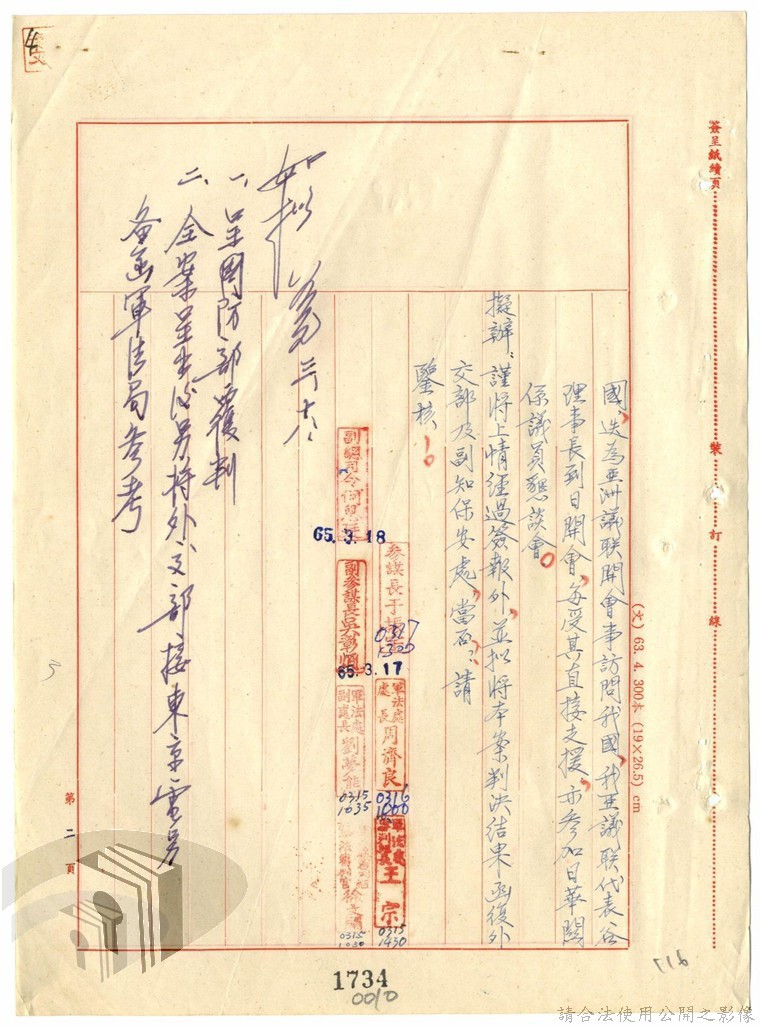 簽呈紙續頁
裝
訂
線
(火) 63. 4. 300本 (19×26.5) cm
國,迭為亞洲議联開會事訪問我國,我亞議联代表谷
理事長到日開會,每受其直接支援,亦參加日華關
係議員懇談會。
擬辦:謹將上情經過簽報外,並拟將本案判決結果函復外
交部及副知保安處,當否?請
鑒核!。
如拟
三十六
一、呈國防部覆判
二、全案呈出後另將外交部接東京電另
备函軍法局參考
副總司令
65.3.18
參謀長于
0317
1300
副參謀長吳彰炯
65.3.17
軍法處
處長周濟良
0316
1000
軍法處
副處長劉夢熊
0315
1035
軍法處
審判組長王宗
0315
1430
0315
1030
第二頁
1734
0010
716
請合法使用公開之影像